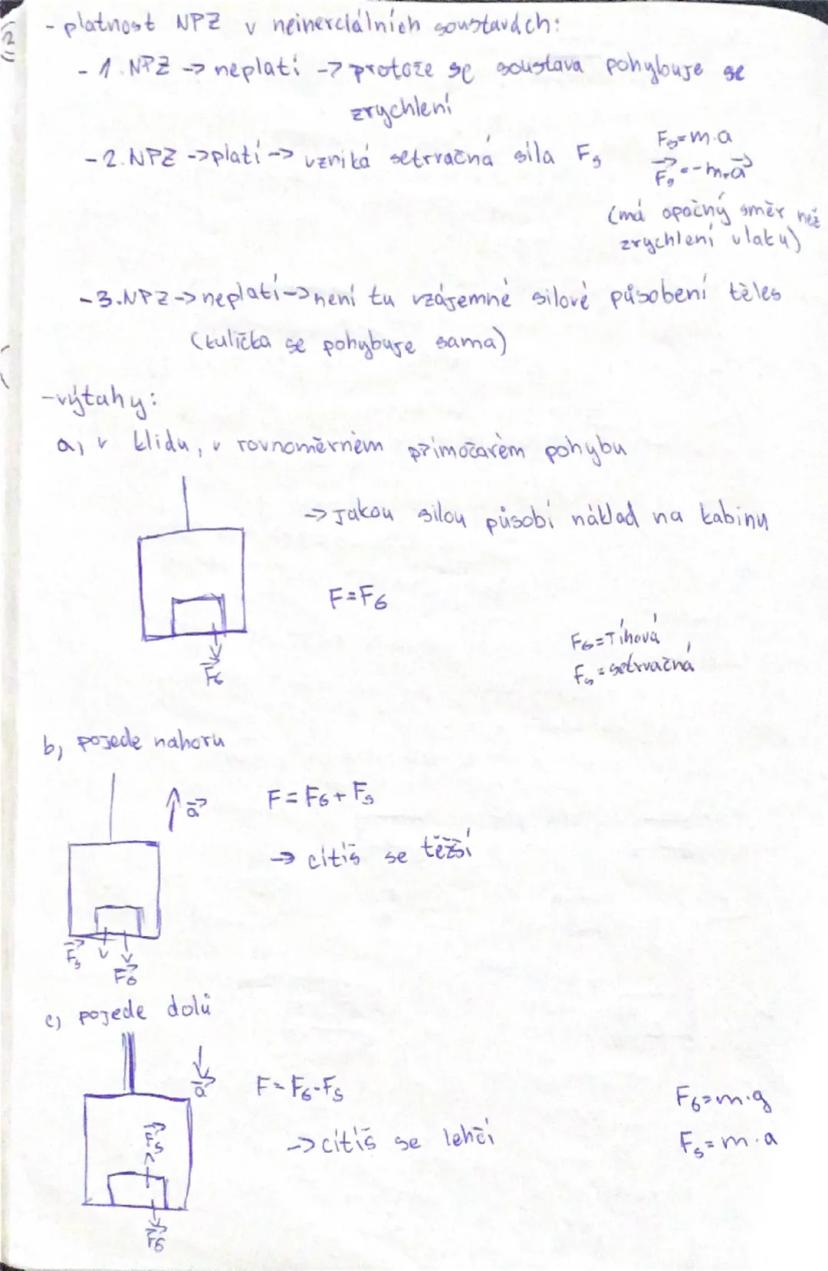 - platnost NPZ v neinerciálních soustavách:
- 1. NPZ -> neplatí -> protože se soustava pohybuje se
zrychlení
- 2. NPZ -> platí -> vzniká setrvačná síla Fs
Fs = m·a
F⃗s = -m·a⃗
(má opačný směr než
zrychlení vlaku)
- 3. NPZ -> neplatí -> není tu vzájemné silové působení těles
(kulička se pohybuje sama)
- výtahy:
a, v klidu, v rovnoměrném přímočarém pohybu
-> jakou silou působí náklad na kabinu
F = FG
F⃗G
FG = Tíhová
Fs = setrvačná
b, pojede nahoru
a⃗
F = FG + Fs
-> cítíš se těžší
F⃗s
F⃗G
c, pojede dolů
a⃗
F = FG - Fs
-> cítíš se lehčí
FG = m·g
Fs = m·a
F⃗s
F⃗G